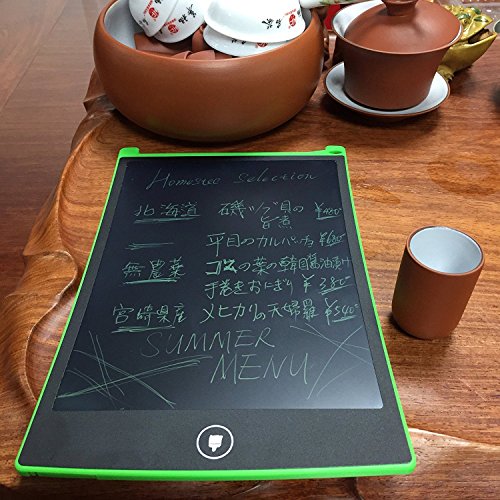 Homestec Selection
北海道 磯ツブ貝の
旨煮 ¥480
平目のカルパッチョ ¥680
無農薬 の葉の韓国醤油漬け
手巻きおにぎり ¥380
宮崎県産 メヒカリの天婦羅 ¥540
SUMMER
MENU